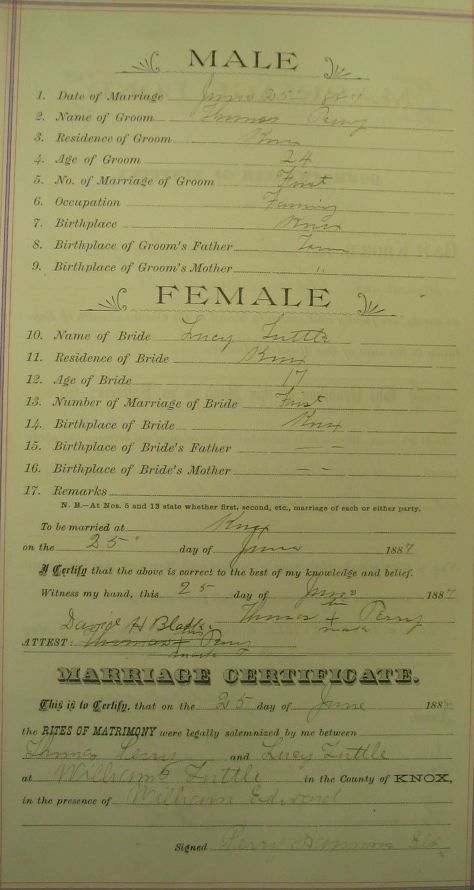 MALE
1. Date of Marriage June 25 1887
2. Name of Groom Thomas Perry
3. Residence of Groom Knox
4. Age of Groom 24
5. No. of Marriage of Groom First
6. Occupation Farming
7. Birthplace Knox
8. Birthplace of Groom's Father Tenn
9. Birthplace of Groom's Mother "
FEMALE
10. Name of Bride Lucy Tuttle
11. Residence of Bride Knox
12. Age of Bride 17
13. Number of Marriage of Bride First
14. Birthplace of Bride Knox
15. Birthplace of Bride's Father —
16. Birthplace of Bride's Mother – –
17. Remarks
N. B.—At Nos. 5 and 13 state whether first, second, etc., marriage of each or either party.
To be married at Knox
on the 25 day of June 1887
I Certify that the above is correct to the best of my knowledge and belief.
Witness my hand, this 25 day of June 1887
his
David H Black Thomas + Perry
mark
ATTEST: Thomas + Perry
mark
MARRIAGE CERTIFICATE.
This is to Certify, that on the 25 day of June 188
the RITES OF MATRIMONY were legally solemnized by me between
Thomas Perry and Lucy Tuttle
at William Tuttle in the County of KNOX,
in the presence of William Edward
Signed Perry Hammons